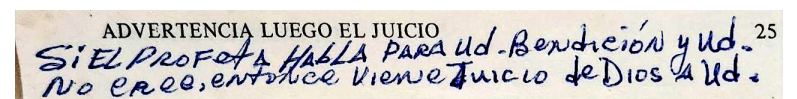 ADVERTENCIA LUEGO EL JUICIO 25
Si EL PROFetA HABLA PARA Ud. Bendición y Ud.
No cRee, entonce Viene Juicio de Dios A Ud.